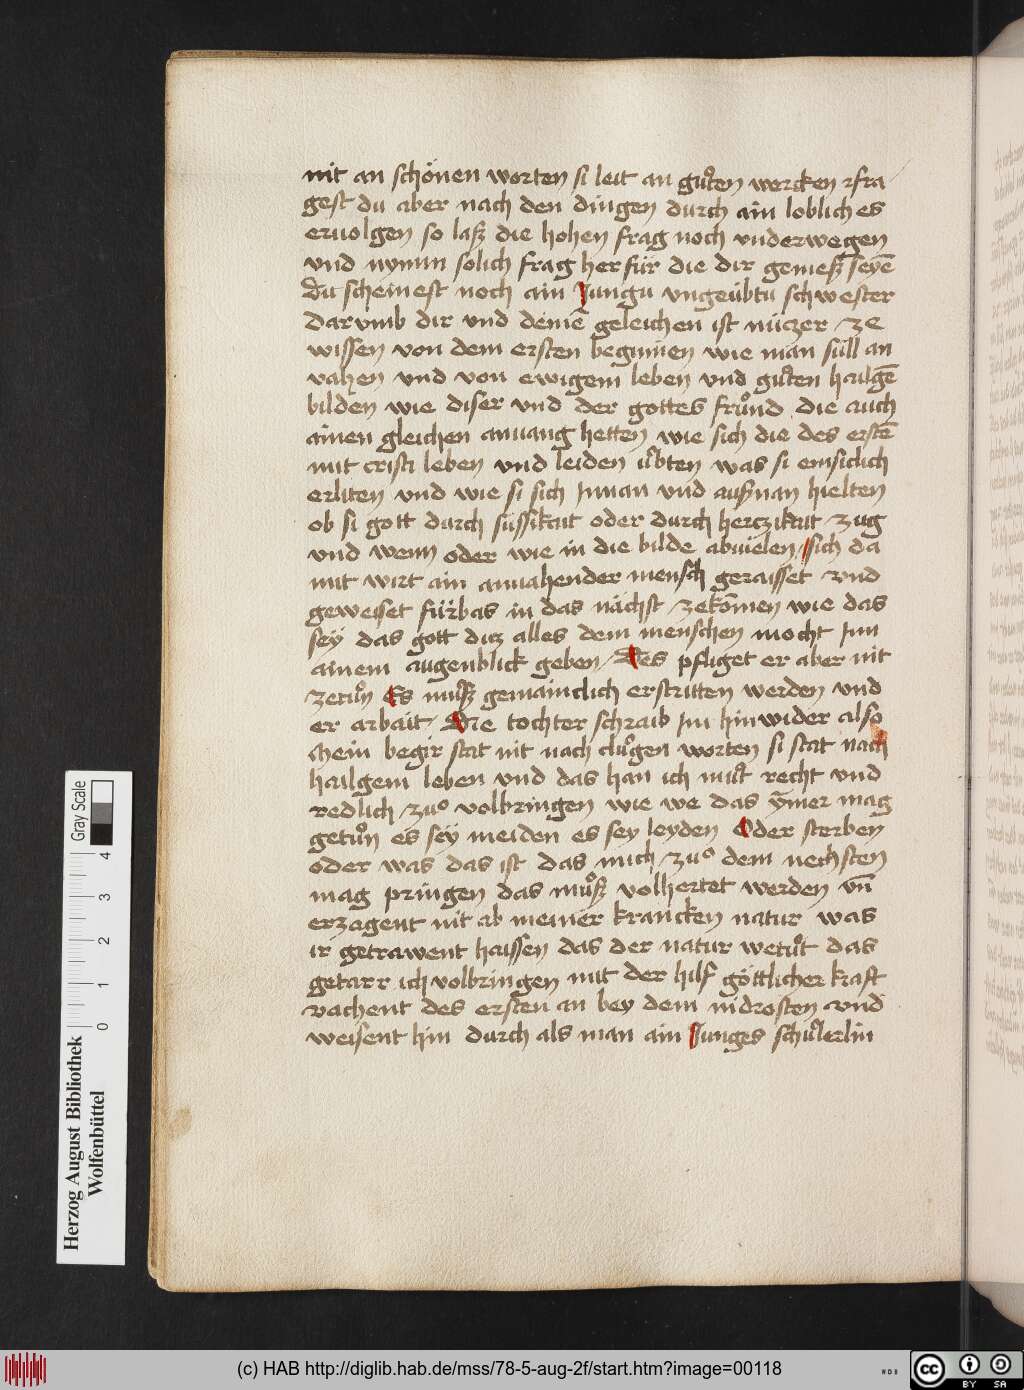 nit an schönen worten si leit an gůten wercken ꝛfra
gest du aber nach den dingen durch ain loblich es
eruolgen so laß die hohen frag noch vnderwegen
vnd nymm solich frag herfür die dir gemeß seyē
Du scheinest noch ain Jungu vngeübtu schwester
darvmb dir vnd deinē geleichen ist nüczer ze
wissen von dem ersten beginnen wie man süll an
vahen vnd von ewigem leben vnd gůten hailgē
bilden wie diser vnd der gottes frůnd die auch
ainen gleichen anuang hetten wie sich die des erstē
mit cristi leben vnd leiden ůbten was si emsiclich
erliten vnd wie si sich Innan vnd außnan hielten
ob si gott durch süssikait oder durch herczikait zug
vnd wenn oder wie in die bilde abuielen / sich da
mit wirt ain anuahender mensch geraisset vnd
gewesset fürbas in das nächst zekōmen wie das
sey das gott dicz alles dem menschen mocht Inn
ainem augenblick geben / Des pfliget er aber nit
zetůn Es můß gemainclich erstritten werden vnd
er arbait / Die tochter schraib Im hinwider also
Mein begir stat nit nach clůgen worten si stat nach
hailgem leben vnd das han ich můt recht vnd
redlich zuͦ volbringen wie we das ymer mag
getůn es sey meiden es sey leyden Oder sterben
oder was das ist das mich zuͦ dem nechsten
mag pringen das můß volhertet werden vn̄
erzagent nit ab meiner krancken natur was
ir getrawent haissen das der natur wetůt das
getarr ich volbringen mit der hilf göttlicher kraft
vachent des ersten an bey dem nidrosten vnd
weisent hin durch als man ain Junges schůlerlin
Herzog August Bibliothek
Wolfenbüttel
0 1 2 3 4
Gray Scale
(c) HAB http://diglib.hab.de/mss/78-5-aug-2f/start.htm?image=00118
WDB
cc BY SA